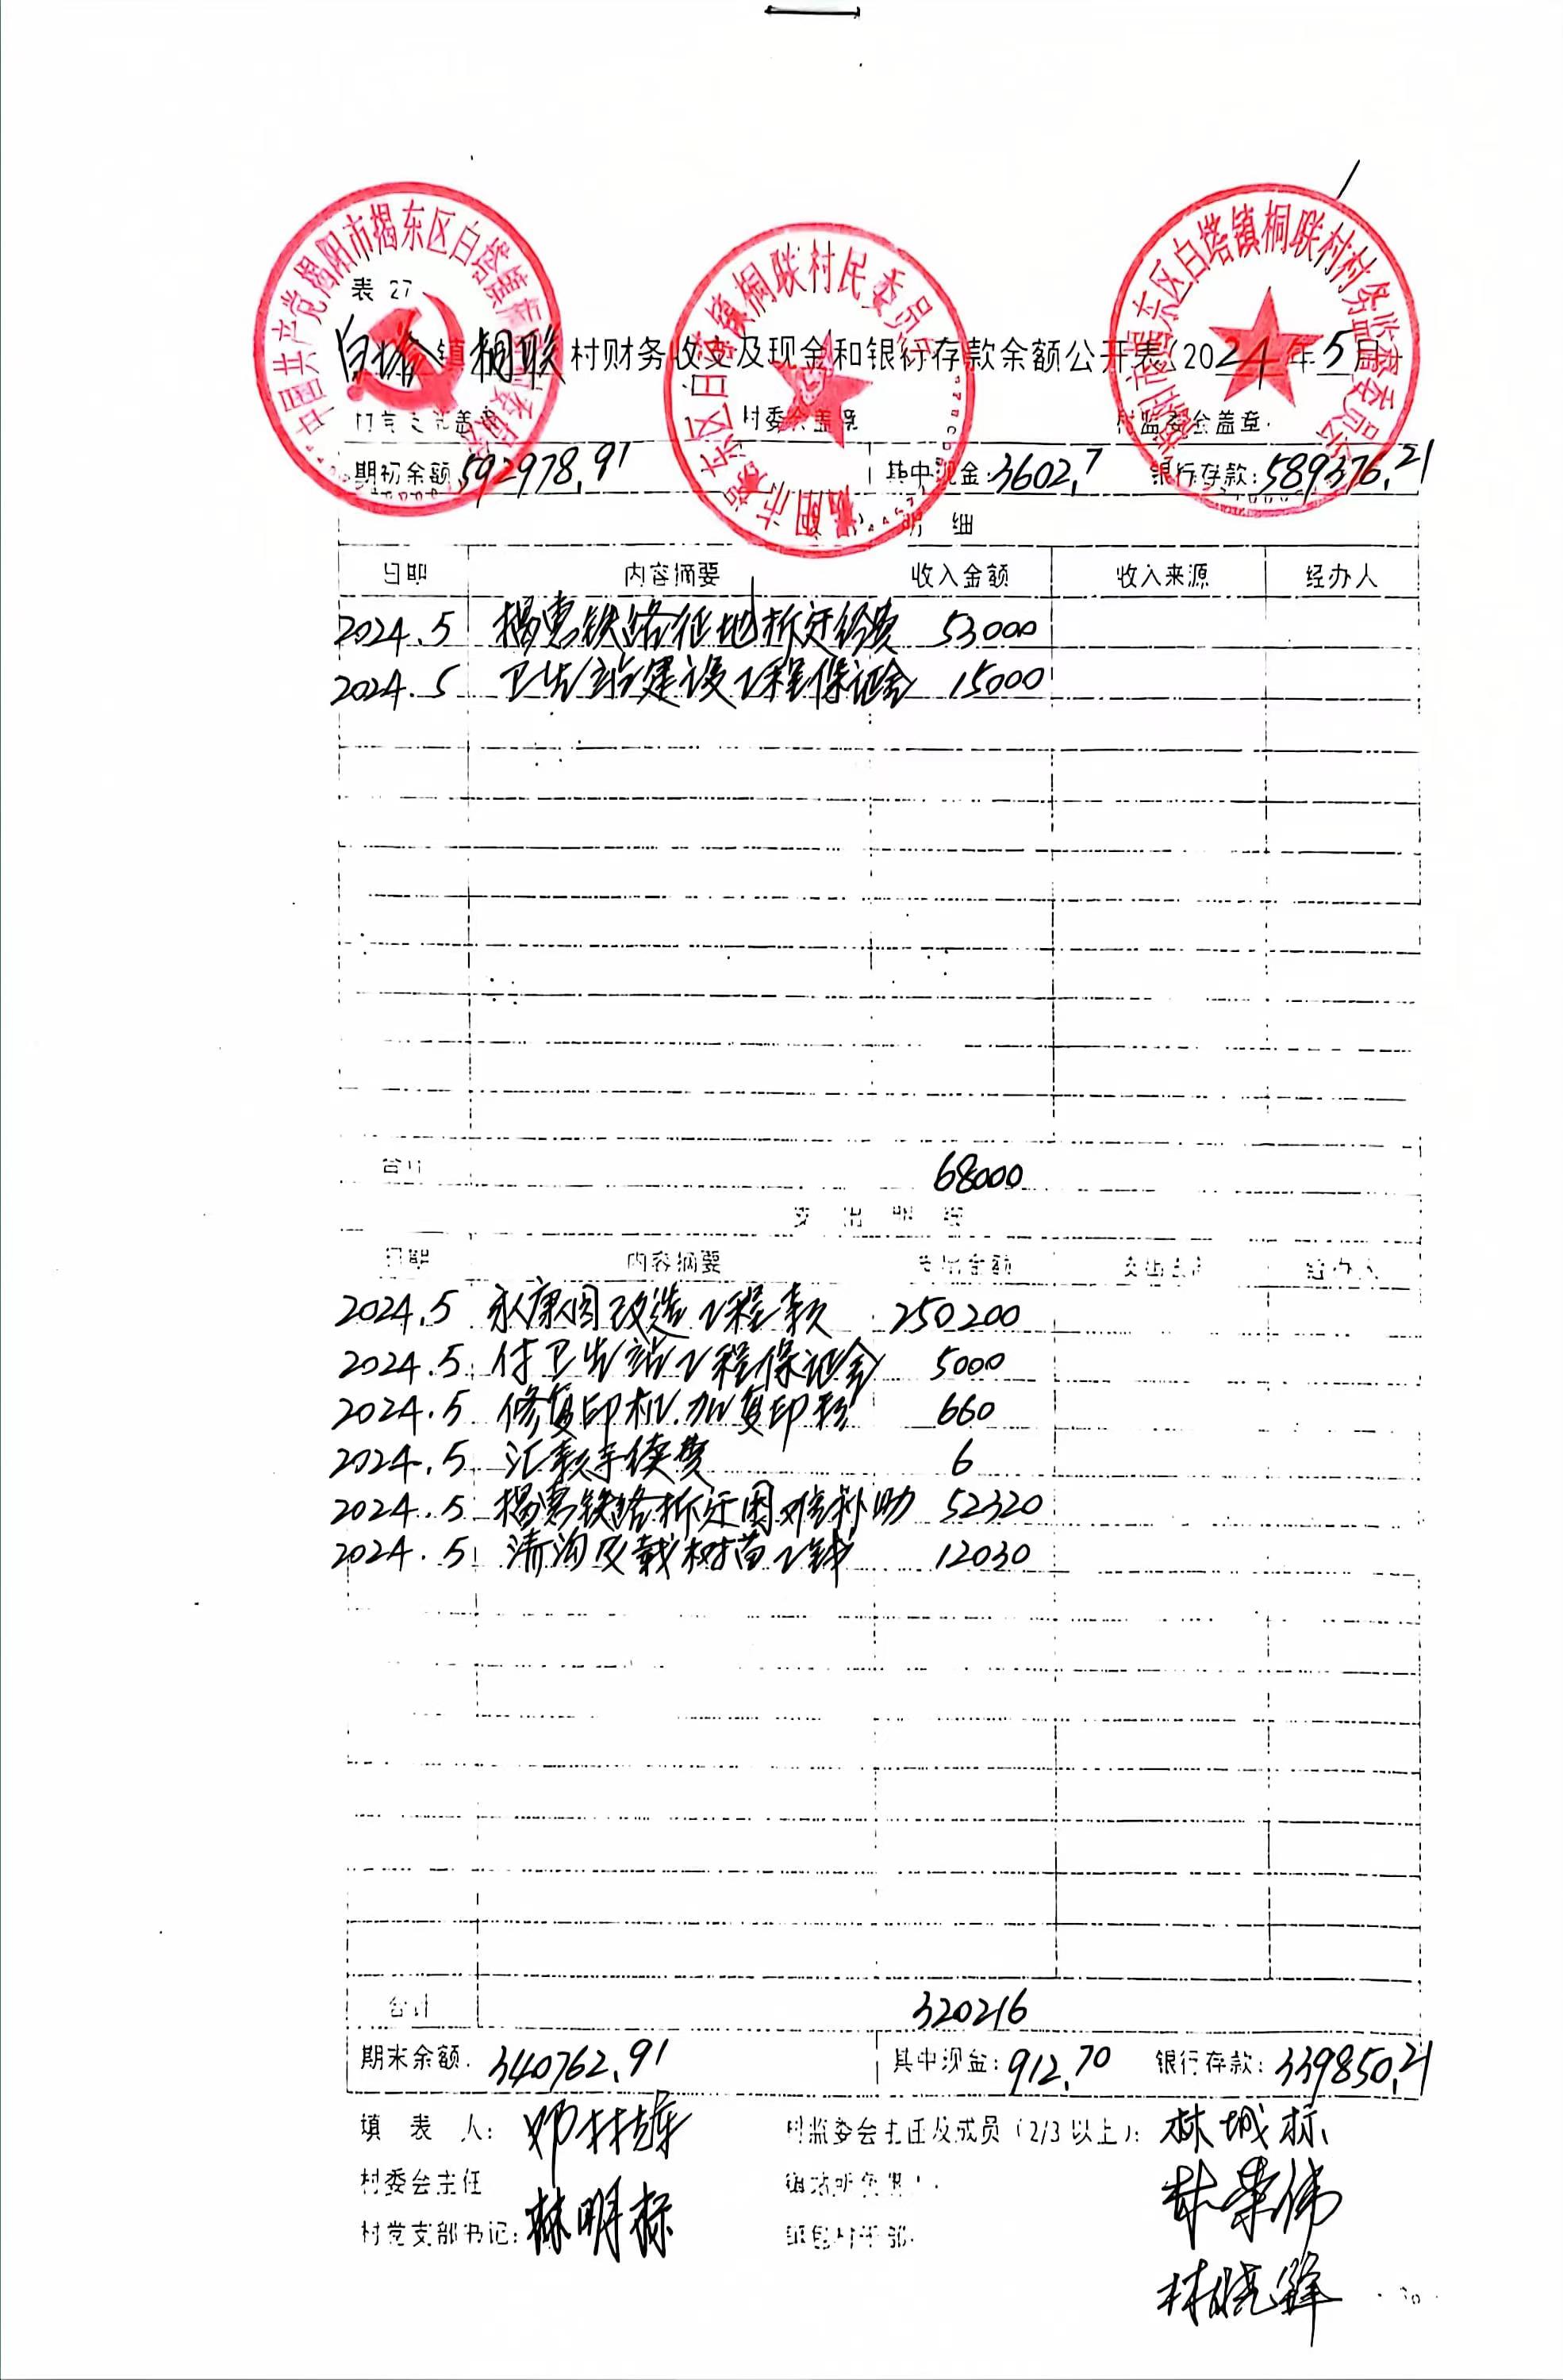 表 27
白塔镇桐联村财务收支及现金和银行存款余额公开表(2024年5月)
村委会盖章 村监委会盖章:
期初余额:592978.91 其中现金:3602.7 银行存款:589376.21
明 细
日期 内容摘要 收入金额 收入来源 经办人
2024.5 揭惠铁路征地拆迁经费 53000
2024.5 卫生站建设工程保证金 15000
合计 68000
支 出 明 细
日期 内容摘要 支出金额 经办人
2024.5 永康围改造工程款 250200
2024.5 付卫生站工程保证金 5000
2024.5 修复印机.加复印粉 660
2024.5 汇款手续费 6
2024.5 揭惠铁路拆迁困难补助 52320
2024.5 清沟及栽树苗工钱 12030
合计 320216
期末余额: 340762.91 其中现金:912.70 银行存款:339850.21
填 表 人: 村监委会主任及成员(2/3以上): 林城标
村委会主任 林荣伟
村党支部书记: 林明标
林晓锋
中国共产党揭阳市揭东区白塔镇桐联村
揭阳市揭东区白塔镇桐联村民委员会
揭阳市揭东区白塔镇桐联村村务监督委员会